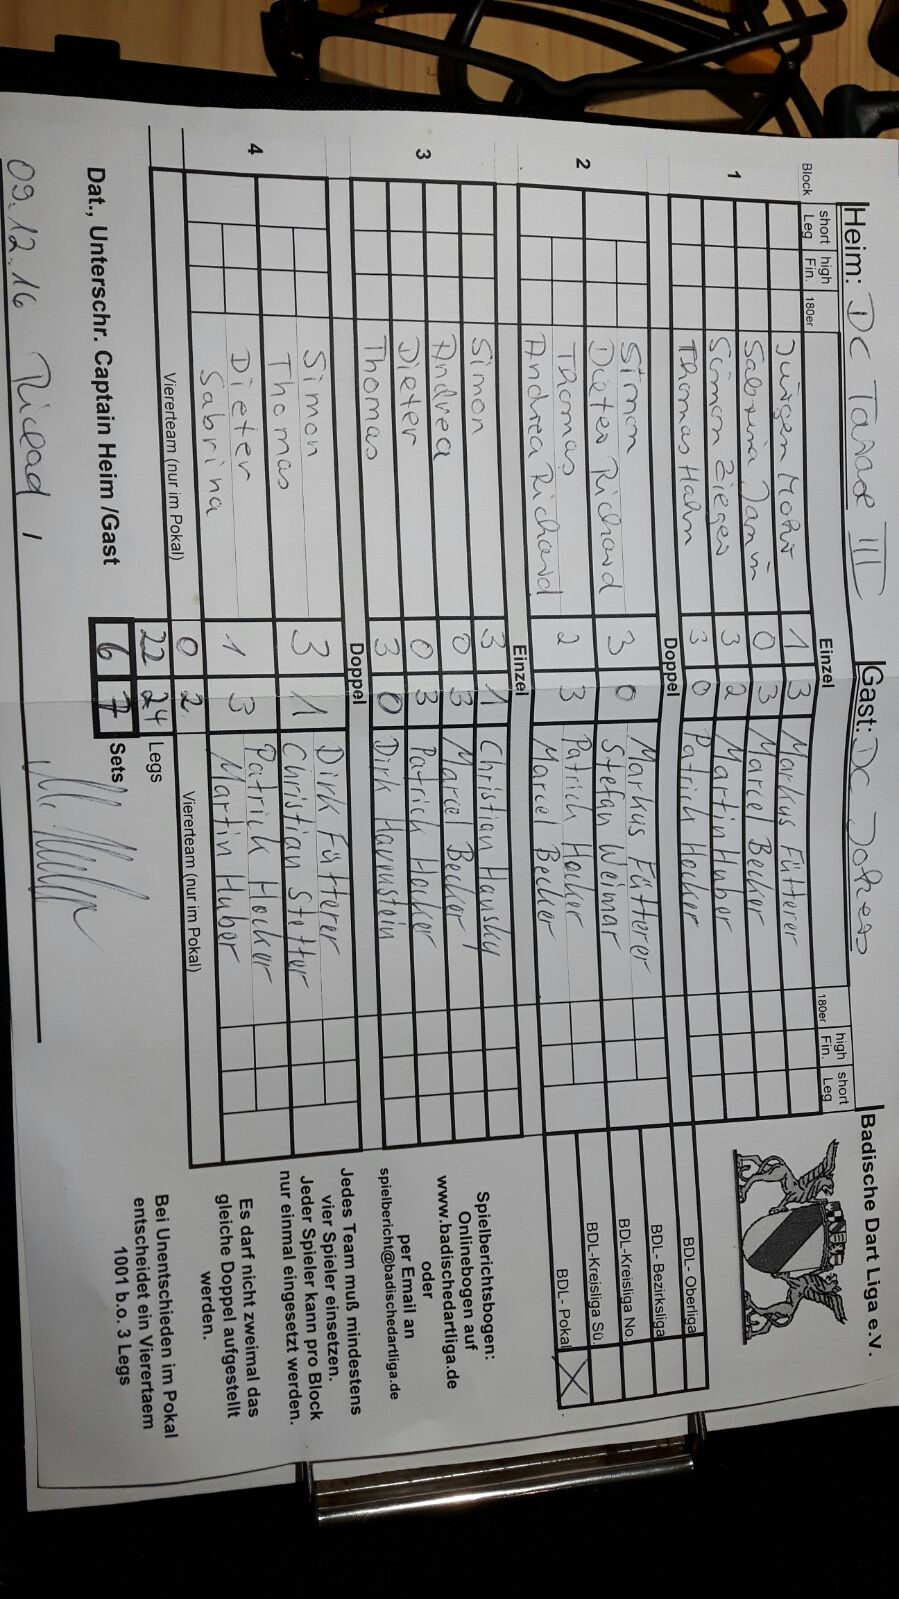 Heim: DC Tarace III Gast: DC Jokers Badische Dart Liga e.V.
Block short Leg high Fin. 180er Einzel 180er high Fin. short Leg
1 Jürgen Mohr 1 3 Markus Fütterer
Sabrina 0 3 Marcel Becker
Simon Zieger 3 2 Martin Huber
Thomas Hahn 3 0 Patrich Hocker
Doppel
2 Simon 3 0 Markus Fütterer
Dieter Richard Stefan Weimar
Thomas 2 3 Patrich Hocker
Andrea Richard Marcel Becker
Einzel
3 Simon 3 1 Christian Hausky
Andrea 0 3 Marcel Becker
Dieter 0 3 Patrich Hocker
Thomas 3 0 Dirk
Doppel
4 Simon 3 1 Dirk Fütterer
Thomas Christian Stetter
Dieter 1 3 Patrick Hocker
Sabrina Martin Huber
Viererteam (nur im Pokal) 0 2 Viererteam (nur im Pokal)
22 24 Legs
Dat., Unterschr. Captain Heim /Gast 6 7 Sets
09.12.16
BDL - Oberliga
BDL - Bezirksliga
BDL-Kreisliga No.
BDL-Kreisliga Sü.
BDL - Pokal X
Spielberichtsbogen:
Onlinebogen auf
www.badischedartliga.de
oder
per Email an
spielbericht@badischedartliga.de
Jedes Team muß mindestens
vier Spieler einsetzen.
Jeder Spieler kann pro Block
nur einmal eingesetzt werden.
Es darf nicht zweimal das
gleiche Doppel aufgestellt
werden.
Bei Unentschieden im Pokal
entscheidet ein Vierertaem
1001 b.o. 3 Legs